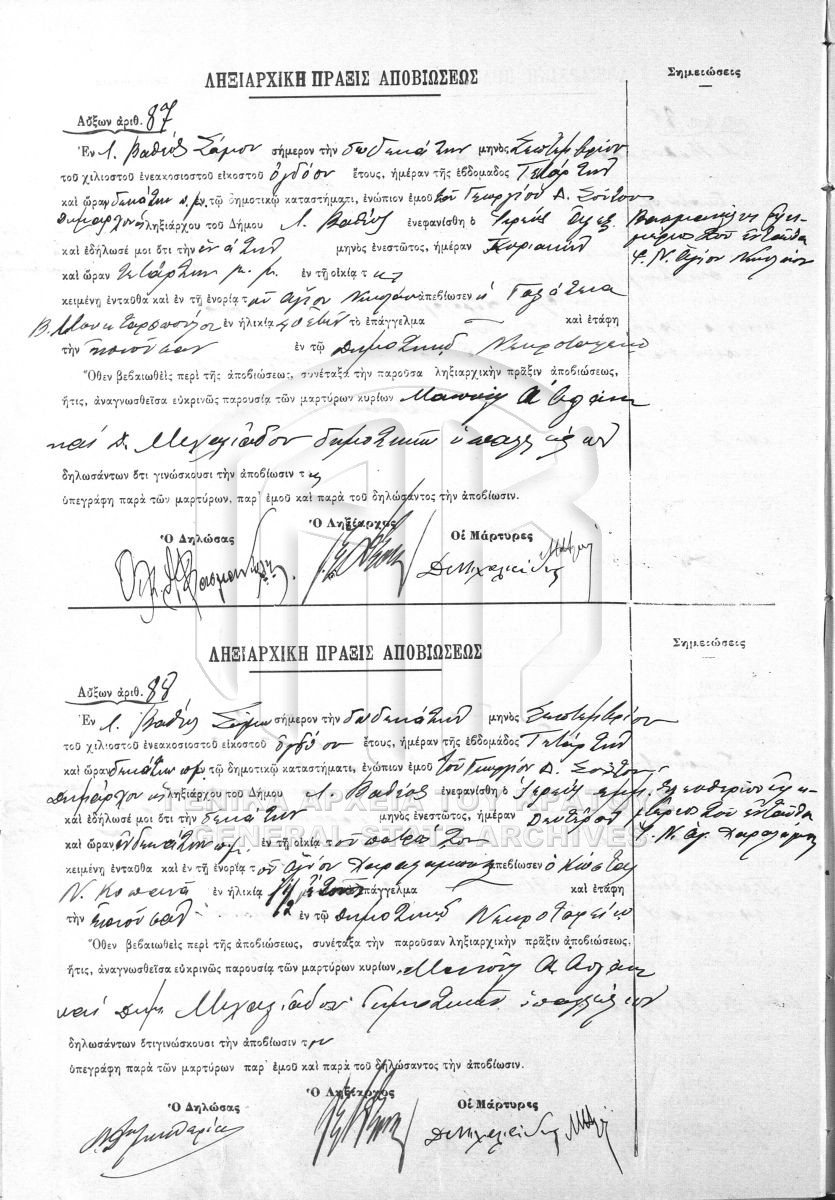 ΛΗΞΙΑΡΧΙΚΗ ΠΡΑΞΙΣ ΑΠΟΒΙΩΣΕΩΣ
Σημειώσεις
Αὔξων ἀριθ. 87
Ἐν Λ. Βαθέος Σάμου σήμερον τὴν δωδεκάτην μηνὸς Σεπτεμβρίου
τοῦ χιλιοστοῦ ἐνεακοσιοστοῦ εἰκοστοῦ ὀγδόου ἔτους, ἡμέραν τῆς ἑβδομάδος Τετάρτην
καὶ ὥραν δεκάτην π.μ. ἐν τῷ δημοτικῷ καταστήματι, ἐνώπιον ἐμοῦ τοῦ Γεωργίου Δ. Σούτου
Δημάρχου ὡς ληξιάρχου τοῦ Δήμου Λ. Βαθέος ἐνεφανίσθη ὁ Ἱερεὺς
καὶ ἐδήλωσέ μοι ὅτι τὴν ἐνάτην μηνὸς ἐνεστῶτος, ἡμέραν Κυριακὴν
ἐφημέριος τοῦ ἐνταῦθα
Ἱ. Ν. Ἁγίου Νικολάου
καὶ ὥραν τετάρτην μ.μ. ἐν τῇ οἰκίᾳ της
κειμένῃ ἐνταῦθα καὶ ἐν τῇ ἐνορίᾳ τοῦ Ἁγίου Νικολάου ἀπεβίωσεν ἡ Γαλάτεια
Β. ἐν ἡλικίᾳ ἐτῶν τὸ ἐπάγγελμα — καὶ ἐτάφη
τὴν ἐπιοῦσαν ἐν τῷ Δημοτικῷ Νεκροταφείῳ
Ὅθεν βεβαιωθεὶς περὶ τῆς ἀποβιώσεως, συνέταξα τὴν παροῦσα ληξιαρχικὴν πρᾶξιν ἀποβιώσεως,
ἥτις, ἀναγνωσθεῖσα εὐκρινῶς παρουσίᾳ τῶν μαρτύρων κυρίων Μανώλη
καὶ Δ. Μιχαλιάδου δημοτικῶν ὑπαλλήλων
δηλωσάντων ὅτι γινώσκουσι τὴν ἀποβίωσιν της
ὑπεγράφη παρὰ τῶν μαρτύρων, παρ' ἐμοῦ καὶ παρὰ τοῦ δηλώσαντος τὴν ἀποβίωσιν.
Ὁ Δηλώσας
Ὁ Ληξίαρχος
Οἱ Μάρτυρες
ΛΗΞΙΑΡΧΙΚΗ ΠΡΑΞΙΣ ΑΠΟΒΙΩΣΕΩΣ
Σημειώσεις
Αὔξων ἀριθ. 88
Ἐν Λ. Βαθέος Σάμου σήμερον τὴν δωδεκάτην μηνὸς Σεπτεμβρίου
τοῦ χιλιοστοῦ ἐνεακοσιοστοῦ εἰκοστοῦ ὀγδόου ἔτους, ἡμέραν τῆς ἑβδομάδος Τετάρτην
καὶ ὥραν δεκάτην π.μ. ἐν τῷ δημοτικῷ καταστήματι, ἐνώπιον ἐμοῦ τοῦ Γεωργίου Δ. Σούτου
Δημάρχου ὡς ληξιάρχου τοῦ Δήμου Λ. Βαθέος ἐνεφανίσθη ὁ Ἱερεὺς Εμμ.
καὶ ἐδήλωσέ μοι ὅτι τὴν δεκάτην μηνὸς ἐνεστῶτος, ἡμέραν Δευτέραν
ἐφημέριος τοῦ ἐνταῦθα
Ἱ. Ν. Ἁγ. Χαραλάμπους
καὶ ὥραν ἑνδεκάτην π.μ. ἐν τῇ οἰκίᾳ τοῦ πατρός του
κειμένῃ ἐνταῦθα καὶ ἐν τῇ ἐνορίᾳ τοῦ Ἁγίου Χαραλάμπους ἀπεβίωσεν ὁ Κώστας
Ν. ἐν ἡλικίᾳ ἐπάγγελμα — καὶ ἐτάφη
τὴν ἐπιοῦσαν ἐν τῷ Δημοτικῷ Νεκροταφείῳ
Ὅθεν βεβαιωθεὶς περὶ τῆς ἀποβιώσεως, συνέταξα τὴν παροῦσαν ληξιαρχικὴν πρᾶξιν ἀποβιώσεως,
ἥτις, ἀναγνωσθεῖσα εὐκρινῶς παρουσίᾳ τῶν μαρτύρων κυρίων Μανώλη
καὶ Δημ. Μιχαλιάδου δημοτικῶν ὑπαλλήλων
δηλωσάντων ὅτι γινώσκουσι τὴν ἀποβίωσιν του
ὑπεγράφη παρὰ τῶν μαρτύρων παρ' ἐμοῦ καὶ παρὰ τοῦ δηλώσαντος τὴν ἀποβίωσιν.
Ὁ Δηλώσας
Ὁ Ληξίαρχος
Οἱ Μάρτυρες
ΓΕΝΙΚΑ ΑΡΧΕΙΑ ΤΟΥ ΚΡΑΤΟΥΣ
GENERAL STATE ARCHIVES